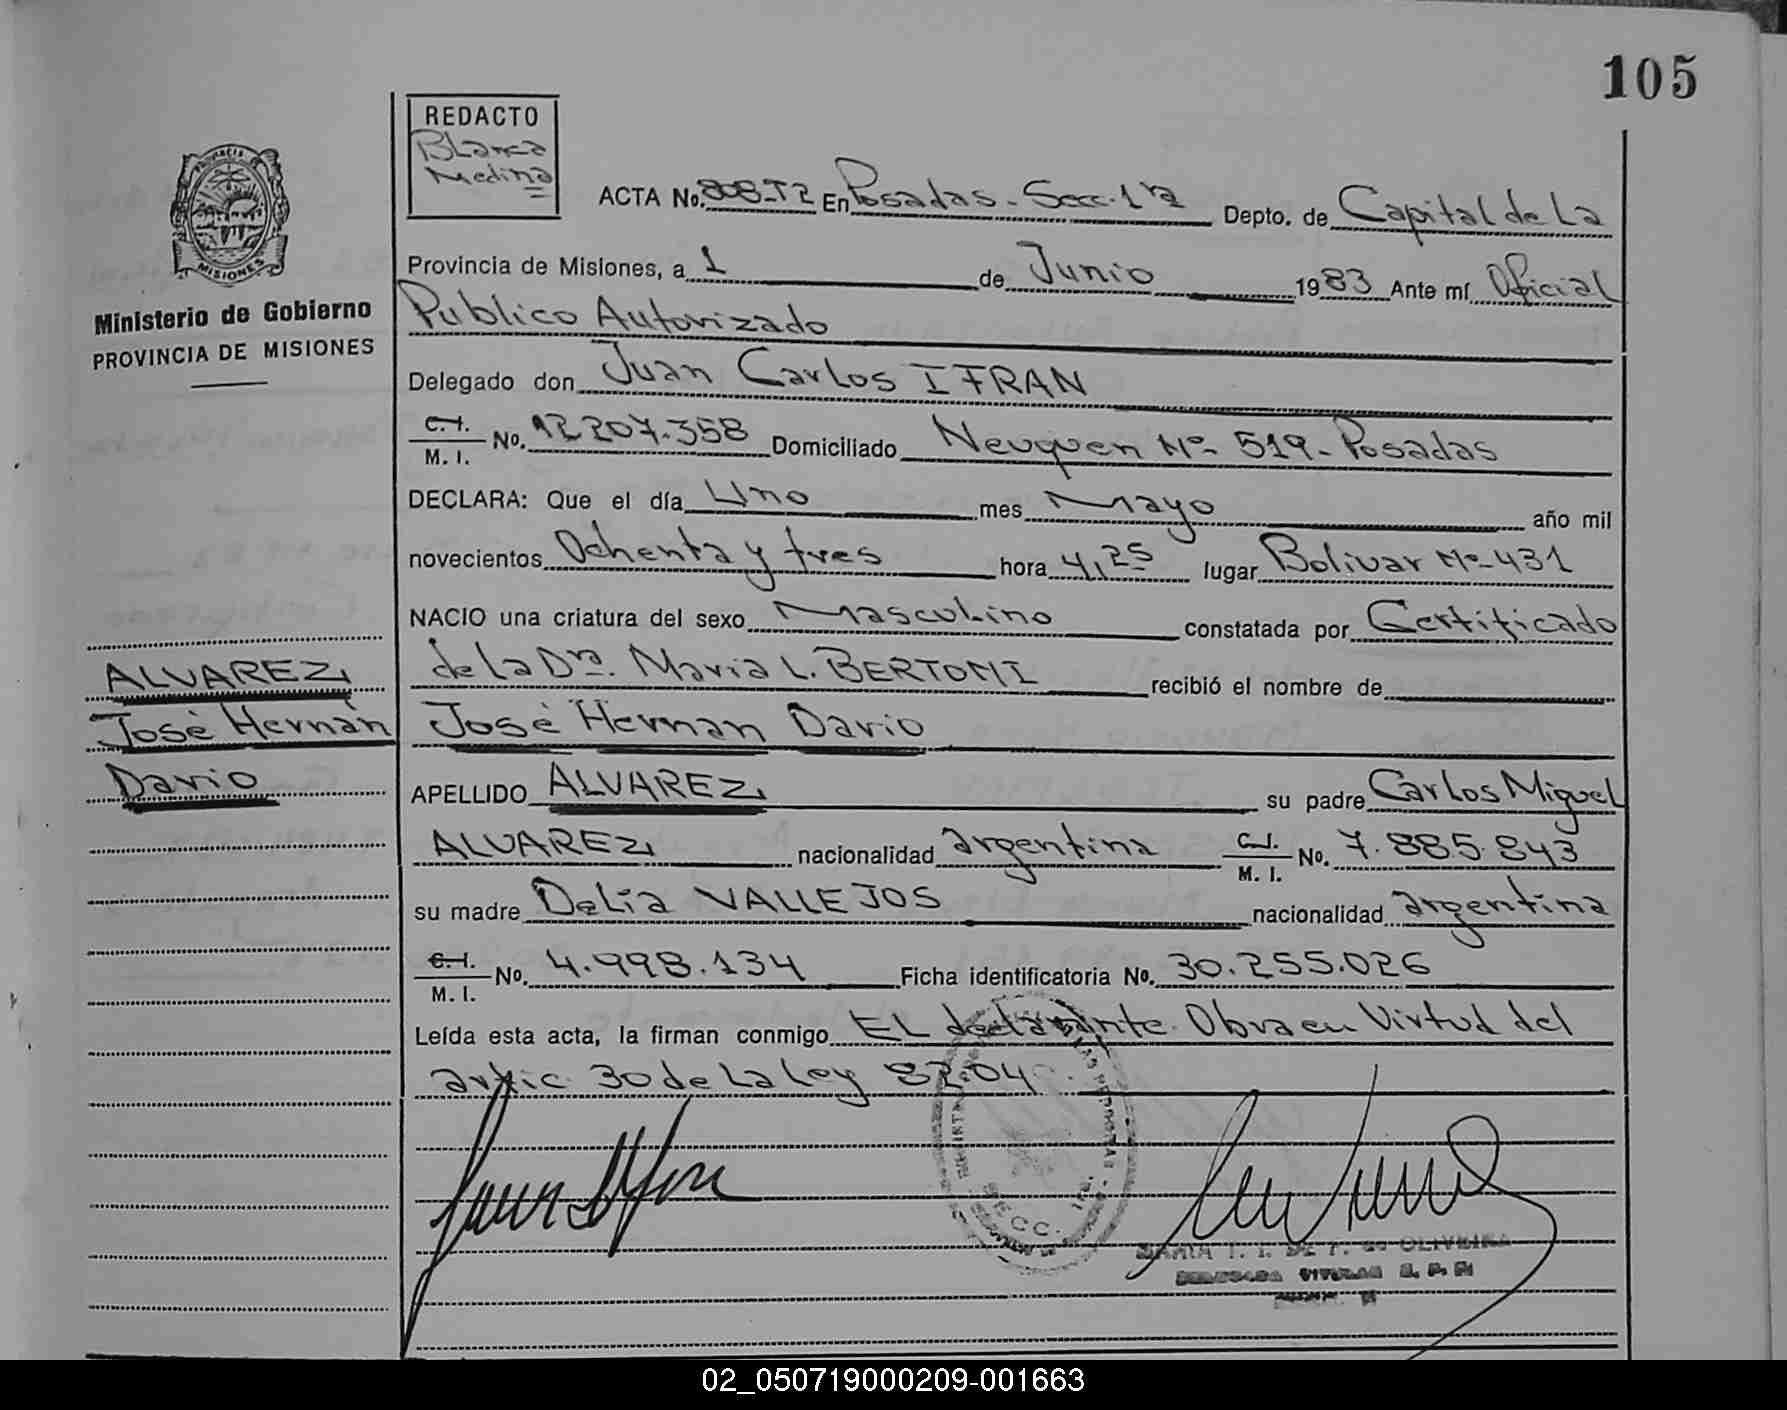 105
REDACTO
Blanca
Medina
ACTA No. 808-T2 En Posadas - Secc. 1ra Depto. de Capital de La
Provincia de Misiones, a 1 de Junio 1983 Ante mí Oficial
Publico Autorizado
Delegado don Juan Carlos IFRAN
C.I. M. I. No. 12.207.358 Domiciliado Neuquen No- 519- Posadas
DECLARA: Que el día Uno mes Mayo año mil
novecientos Ochenta y tres hora 4,25 lugar Bolivar No-431
NACIO una criatura del sexo Masculino constatada por Certificado
de la Dra. Maria L. BERTONI recibió el nombre de
José Hernan Dario
APELLIDO ALVAREZ, su padre Carlos Miguel
ALVAREZ, nacionalidad argentina C.I. M. I. No. 7.885.843
su madre Delia VALLEJOS nacionalidad argentina
C.I. M. I. No. 4.993.134 Ficha identificatoria No. 30.255.026
Leída esta acta, la firman conmigo EL declarante. Obra en Virtud del
artic. 30 de La Ley 82.04
MISIONES
Ministerio de Gobierno
PROVINCIA DE MISIONES
ALVAREZ,
José Hernán
Dario
OLIVEIRA
02_050719000209-001663